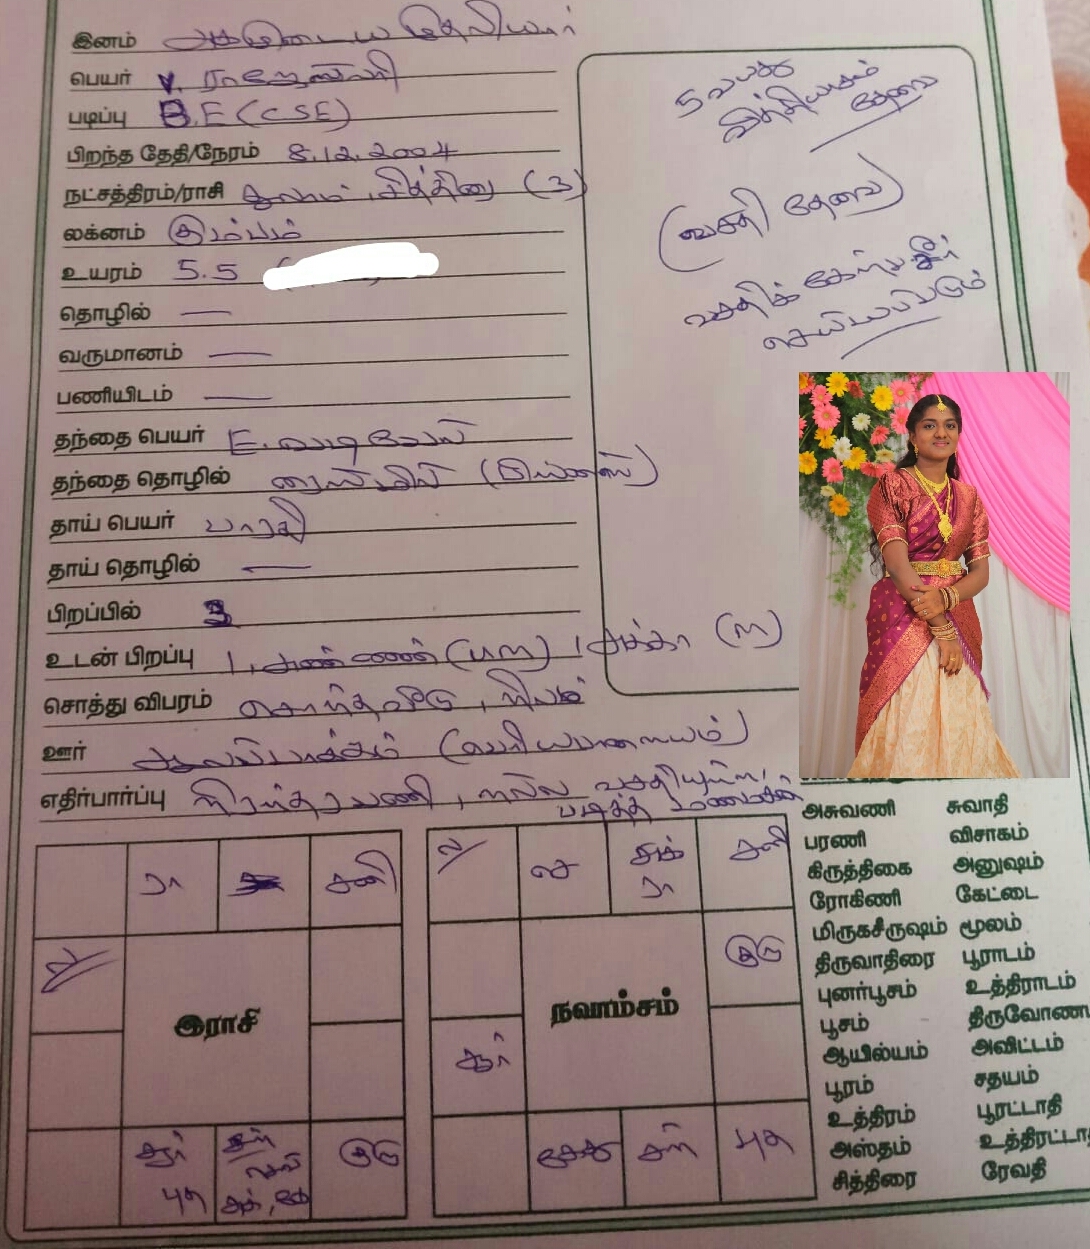 இனம் அகமுடைய தேவியர்
பெயர் V. ராஜேஸ்வரி
படிப்பு B.E (CSE)
பிறந்த தேதி/நேரம் 8.12.2004
நட்சத்திரம்/ராசி துலாம், சித்திரை (3)
லக்னம் கும்பம்
உயரம் 5.5
தொழில் —
வருமானம் —
பணியிடம் —
தந்தை பெயர் E. வடிவேல்
தந்தை தொழில் ரைஸ்மில்
தாய் பெயர் பாரதி
தாய் தொழில் —
பிறப்பில் 3
உடன் பிறப்பு 1, அண்ணன் 1 அக்கா
சொத்து விபரம் சொந்தவீடு, நிலம்
ஊர்
எதிர்பார்ப்பு நிரந்தரபணி, நல்ல வசதியுள்ள
படித்த மணமகன்
5 வயது
வித்தியாசம்
தேவை
(வசதி தேவை)
வசதிக் கேற்ப சீர்
செய்யப்படும்
ரா சனி
ல
இராசி
சூர் புத
குரு
ல சுக் ரா சனி
குரு
நவாம்சம்
சூர்
கேது சந் புத
அசுவணி சுவாதி
பரணி விசாகம்
கிருத்திகை அனுஷம்
ரோகிணி கேட்டை
மிருகசீருஷம் மூலம்
திருவாதிரை பூராடம்
புனர்பூசம் உத்திராடம்
பூசம் திருவோண
ஆயில்யம் அவிட்டம்
பூரம் சதயம்
உத்திரம் பூரட்டாதி
அஸ்தம் உத்திரட்டா
சித்திரை ரேவதி